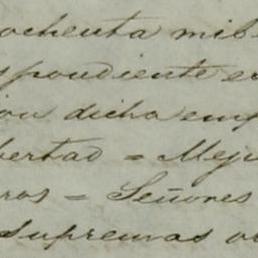 ochenta mil
spondiente en
ion dicha emp
bertad = Meji
ros = Señores
Supremas or